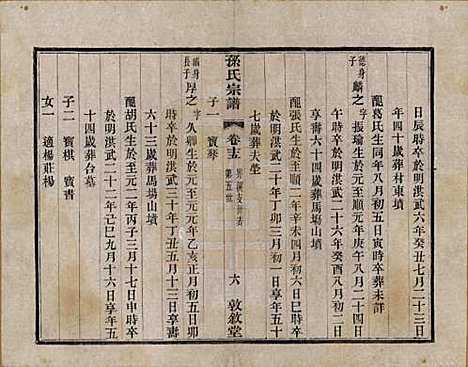 日辰時卒於明洪武六年癸丑七月二十三日
年四十歲葬村東墳
配葛氏生於同年八月初五寅時卒葬未詳
德身子 麟之 字振瑜生於元至順元年庚午八月初三日
午時卒於明洪武二十六年癸酉八月初二日
享壽六十四歲葬馬場山墳
配張氏生於至順二年辛未四月初六日巳時卒
於明洪武二十年丁卯三月初一日享年五十
七歲葬夫塋
子一 寶琴
孫氏宗譜
卷十六
第五世
六
敦敘堂
長子 厚之 字久卿生於元至元元年乙亥正月初五日卯
時卒於明洪武三十年丁丑五月十三日享壽
六十三歲葬馬場山墳
配胡氏生於至元二年丙子三月十七日申時卒
於明洪武二十二年己巳九月十六日享年五
十四歲葬台墓
子二 寶棋 寶書
女一 適楊莊楊